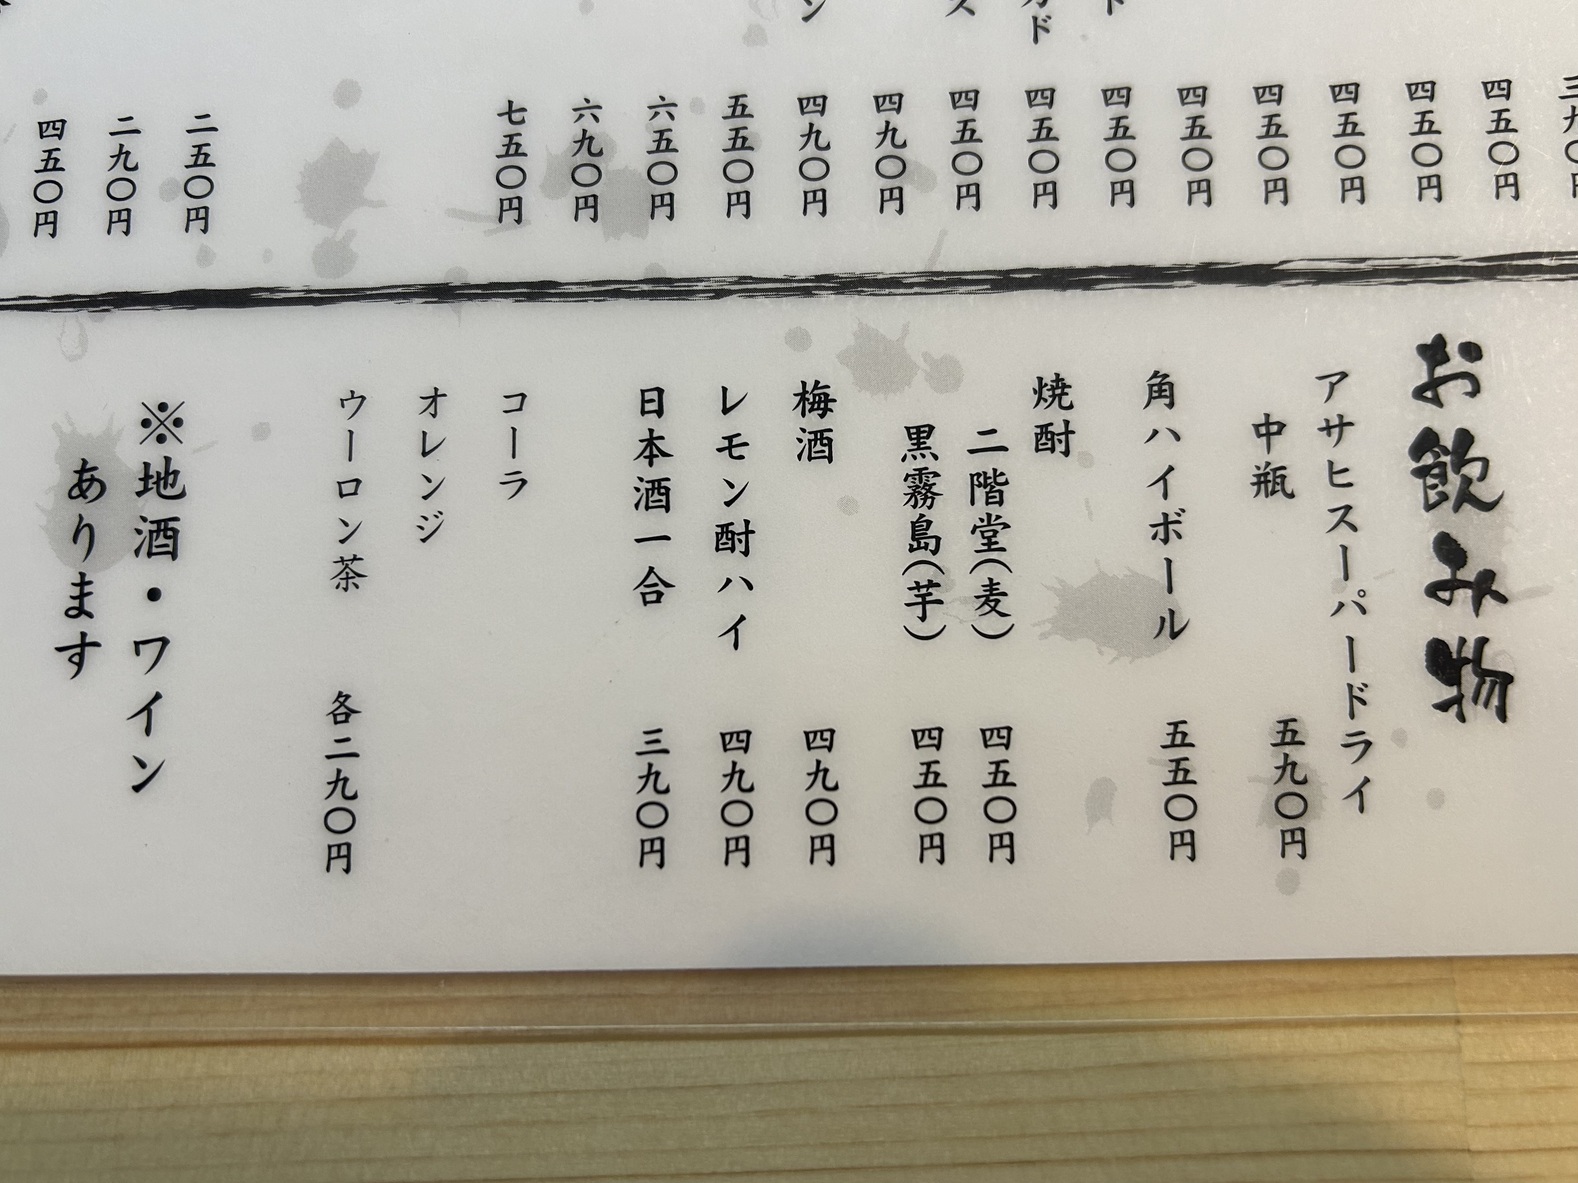 四五〇円
四五〇円
四五〇円
四五〇円
四五〇円
四五〇円
四五〇円
四五〇円
四九〇円
四九〇円
五五〇円
六五〇円
六九〇円
七五〇円
二五〇円
二九〇円
四五〇円
お飲み物
アサヒスーパードライ
中瓶 五九〇円
角ハイボール 五五〇円
焼酎
二階堂(麦) 四五〇円
黒霧島(芋) 四五〇円
梅酒 四九〇円
レモン酎ハイ 四九〇円
日本酒一合 三九〇円
コーラ
オレンジ
ウーロン茶 各二九〇円
※地酒・ワイン
あります